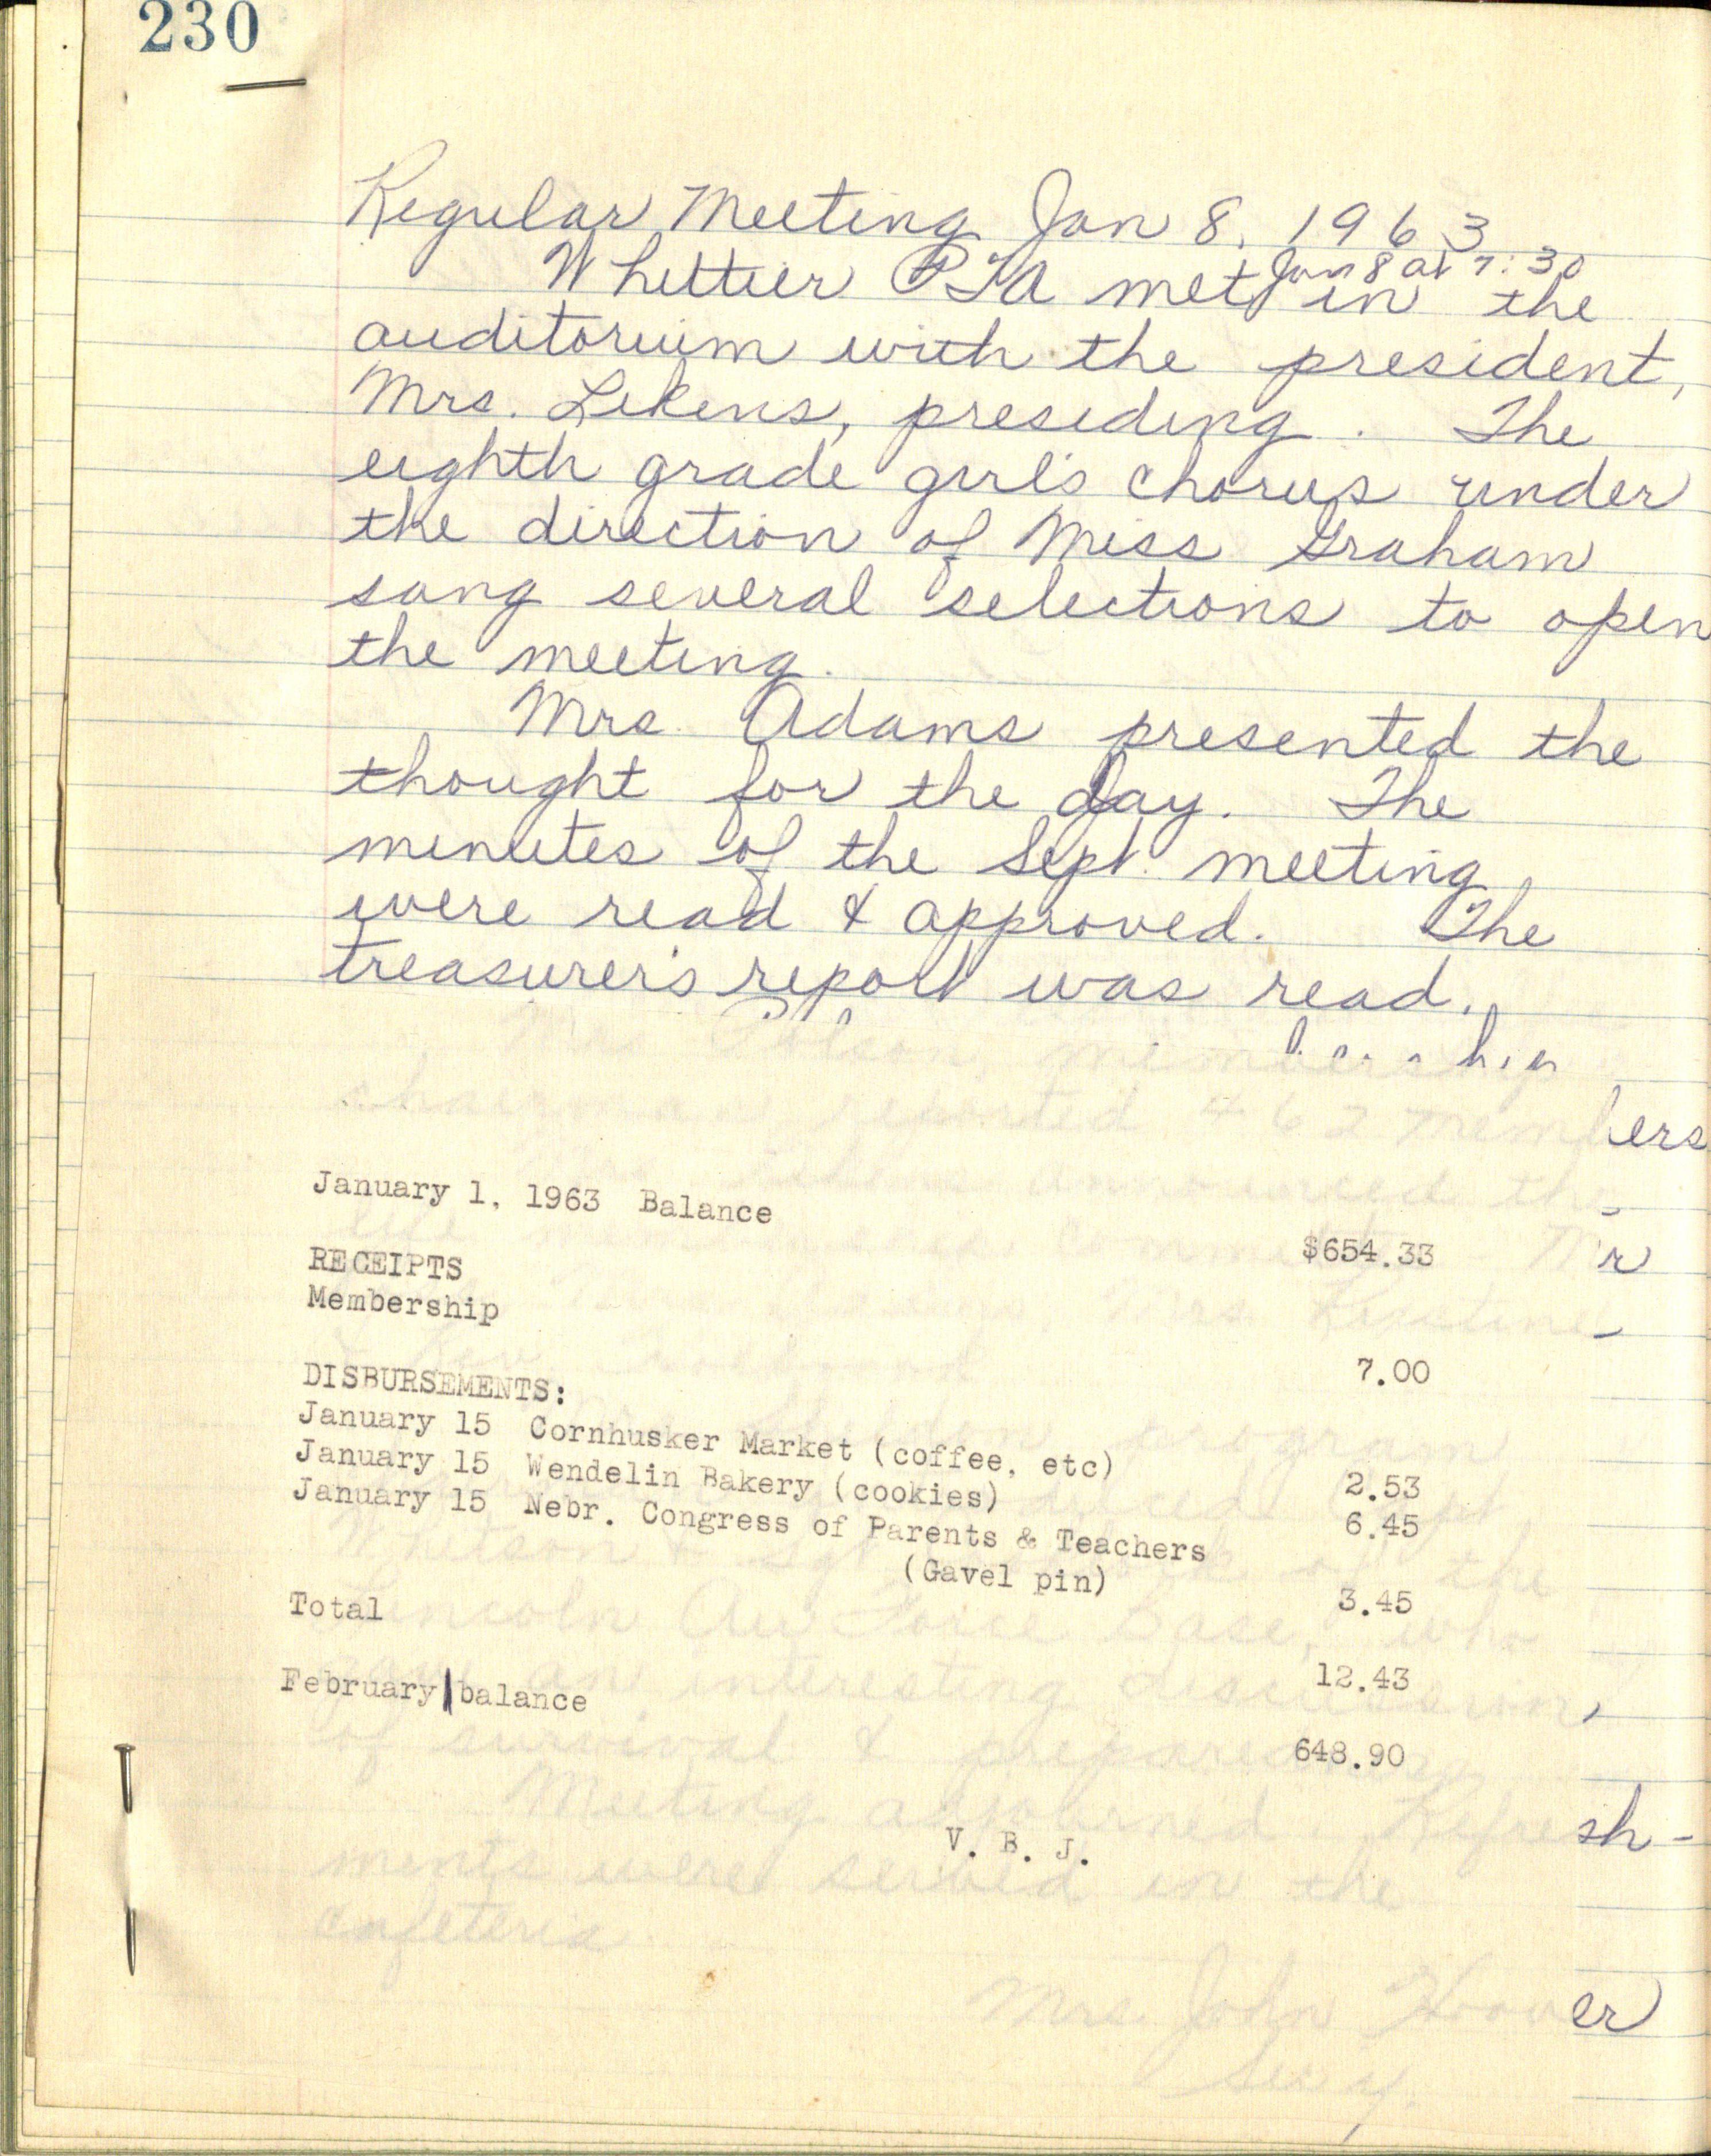 230
Regular Meeting Jan 8, 1963
Jan 8 at 7:30
Whittier PTA met in the
auditorium with the president,
Mrs. Likens, presiding. The
eighth grade girl's chorus under
the direction of Miss Graham
sang several selections to open
the meeting.
Mrs. Adams presented the
thought for the day. The
minutes of the Sept. meeting
were read & approved. The
treasurer's report was read.
Mrs. membership
chairman reported 462 members
announced the
life committee Mr
Mrs.
January 1, 1963 Balance $654.33
RECEIPTS
Membership 7.00
DISBURSEMENTS:
January 15 Cornhusker Market (coffee, etc) 2.53
January 15 Wendelin Bakery (cookies) 6.45
January 15 Nebr. Congress of Parents & Teachers
(Gavel pin) 3.45
Total 12.43
February balance 648.90
V. B. J.
program
the
Lincoln Air Force Base, who
gave an interesting discussion,
of survival &
Meeting adjourned. Refresh-
ments were served in the
cafeteria
Mrs. John Hoover
Sec'y.